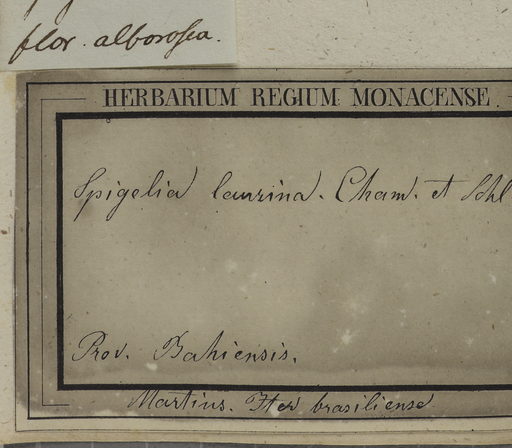 flor. alborosea.
HERBARIUM REGIUM MONACENSE
Spigelia laurina. Cham. et Schl
Prov. Bahiensis.
Martius. Iter brasiliense